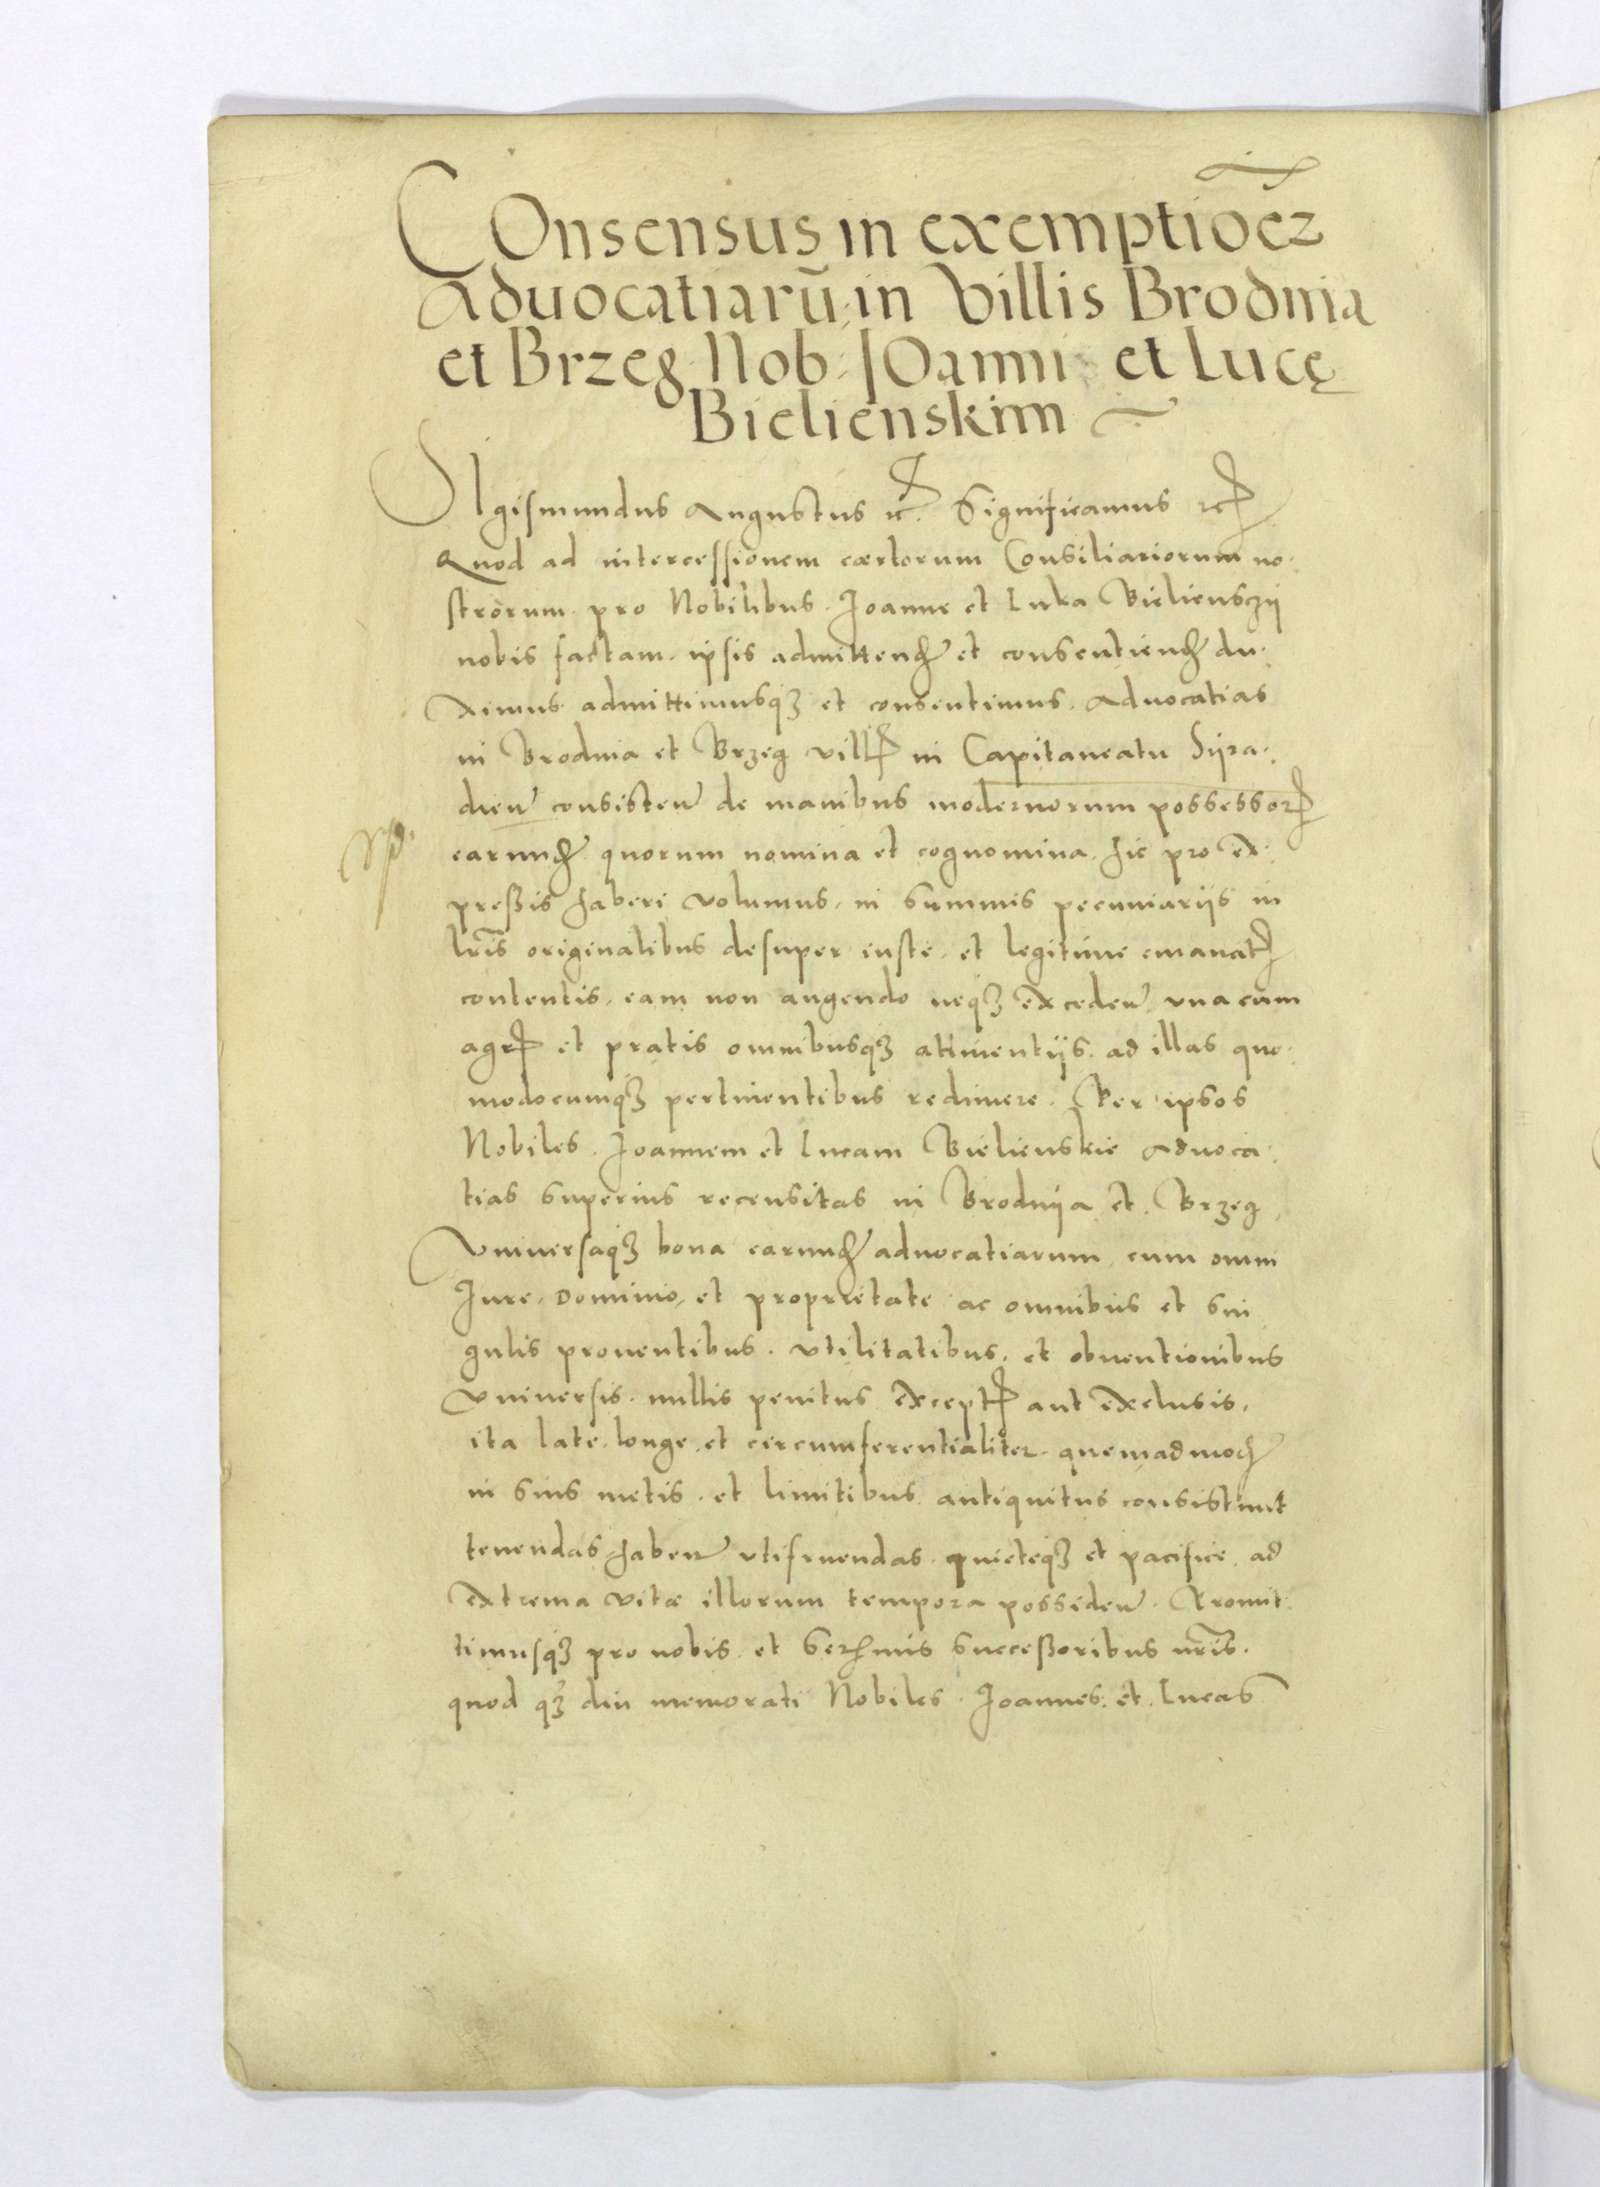 COnsensus in exemptiõez
Aduocatiarũ in Villis Brodnia
et Brzeg Nob: IOanni et Lucę
Bielienskim
SIgismundus Augustus etc. Significamus etc.
Quod ad intercessionem cærtorum Consiliariorum no-
strorum pro Nobilibus Ioanne et Luka Bielienszij
nobis factam, ipsis admitten̄ et consentien̄ du-
ximus admittimusqʒ et consentimus, Aduocatias
in Brodnia et Brzeg vill in Capitaneatu Syra-
dien̄ consisten̄ de manibus modernorum possessor
earun̄ quorum nomina et cognomina hic pro ex-
preßis haberi volumus, in summis pecuniarijs in
lr̃is originalibus desuper iuste et legitime emanat
contentis, eam non augendo neqʒ exceden̄ vna cum
agr et pratis omnibusqʒ attinentijs ad illas quo-
modocumqʒ pertinentibus redimere. Per ipsos
Nobiles Ioannem et Lucam Bielienskie Aduoca-
tias superius recensitas in Brodnija et Brzeg
Vniuersaqʒ bona earun̄ aduocatiarum cum omni
Iure, Dominio, et proprietate ac omnibus et sin
gulis prouentibus, vtilitatibus, et obuentionibus
vniuersis nullis penitus except aut exclusis,
ita late, longe et circumferentialiter quemadmod
in suis metis et limitibus antiquitus consistunt
tenendas haben̄ vtifruendas quieteqʒ et pacifice ad
extrema vitæ illorum tempora possiden̄. Promit-
timusqʒ pro nobis et Serhmis Succeßoribus nr̃is.
quod qʒ diu memorati Nobiles Ioannes et Lucas